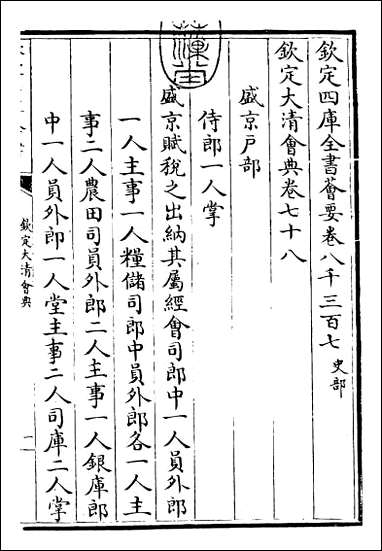 欽定四庫全書薈要卷八千三百七 史部
欽定大清會典卷七十八
盛京戶部
侍郎一人掌
盛京賦稅之出納其屬經會司郎中一人員外郎
一人主事一人糧儲司郎中員外郎各一人主
事二人農田司員外郎二人主事一人銀庫郎
中一人員外郎一人堂主事二人司庫二人掌
欽定大清會典
一